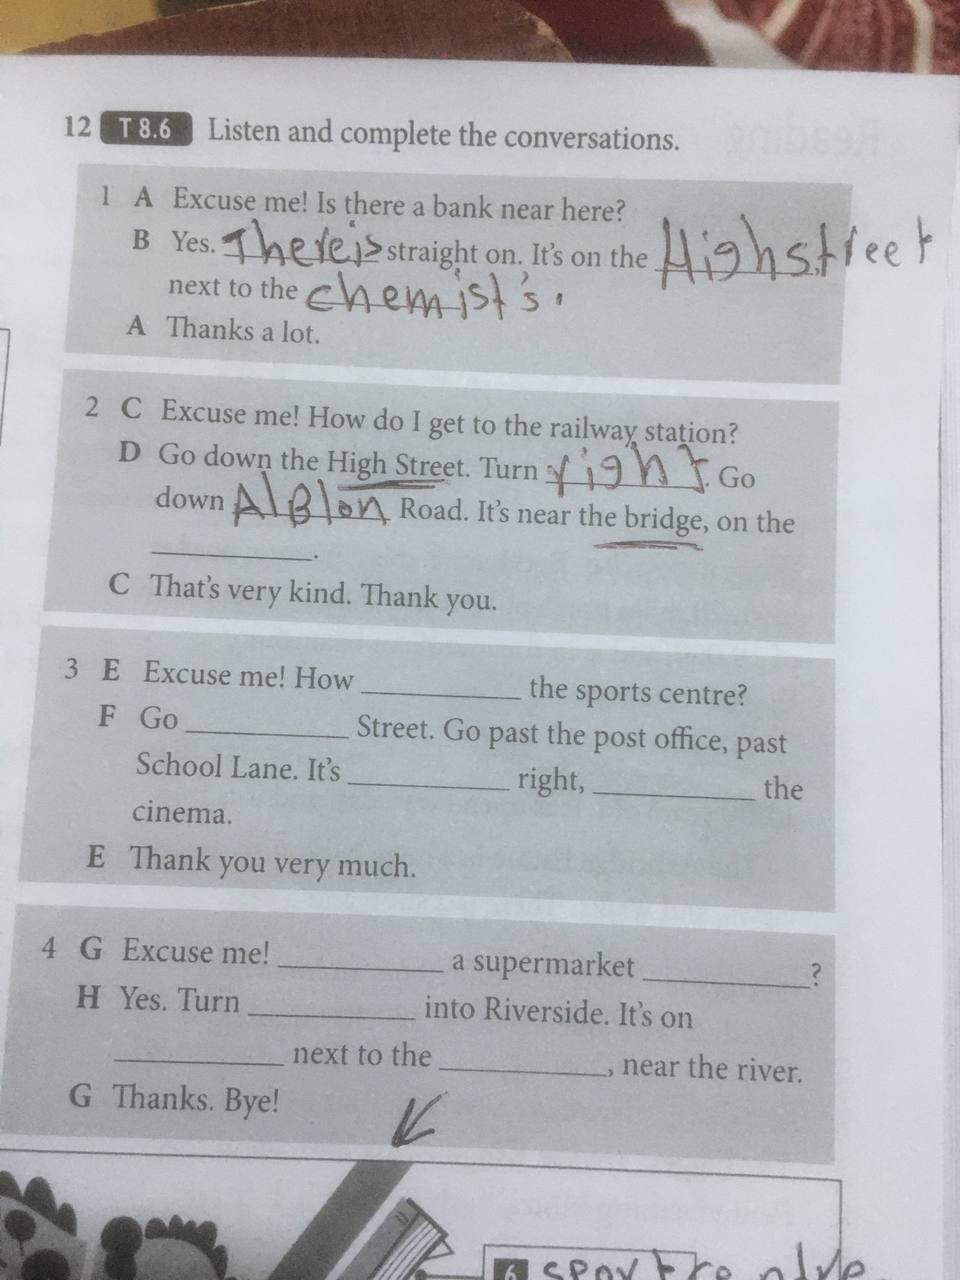 12 T 8.6 Listen and complete the conversations.
1 A Excuse me! Is there a bank near here?
B Yes. There is straight on. It's on the High street
next to the chemist's.
A Thanks a lot.
2 C Excuse me! How do I get to the railway station?
D Go down the High Street. Turn right. Go
down Alblon Road. It's near the bridge, on the
____________.
C That's very kind. Thank you.
3 E Excuse me! How ____________ the sports centre?
F Go ____________ Street. Go past the post office, past
School Lane. It's ____________ right, ____________ the
cinema.
E Thank you very much.
4 G Excuse me! ____________ a supermarket ____________?
H Yes. Turn ____________ into Riverside. It's on
____________ next to the ____________, near the river.
G Thanks. Bye!
6